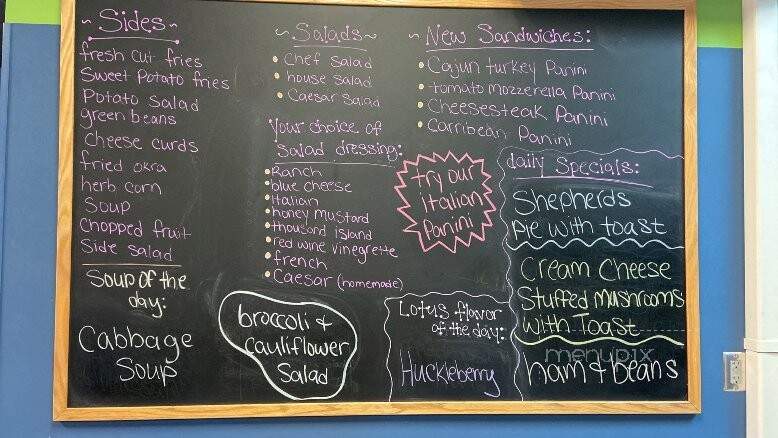 ~ Sides ~
fresh cut fries
Sweet Potato fries
Potato Salad
green beans
Cheese curds
fried okra
herb corn
Soup
Chopped fruit
Side salad
Soup of the
day:
Cabbage
Soup
~ Salads ~
• Chef salad
• house salad
• Caesar Salad
Your choice of
Salad dressing:
• Ranch
• blue cheese
• Italian
• honey mustard
• thousand island
• red wine vinegrette
• french
• Caesar (homemade)
broccoli &
cauliflower
Salad
~ New Sandwiches:
• Cajun turkey Panini
• tomato mozzerella Panini
• Cheesesteak Panini
• Carribean Panini
try our
italian
Panini
Lotus flavor
of the day:
Huckleberry
daily Specials:
Shepherds
Pie with toast
Cream Cheese
Stuffed Mushrooms
with Toast
menupix
ham & beans